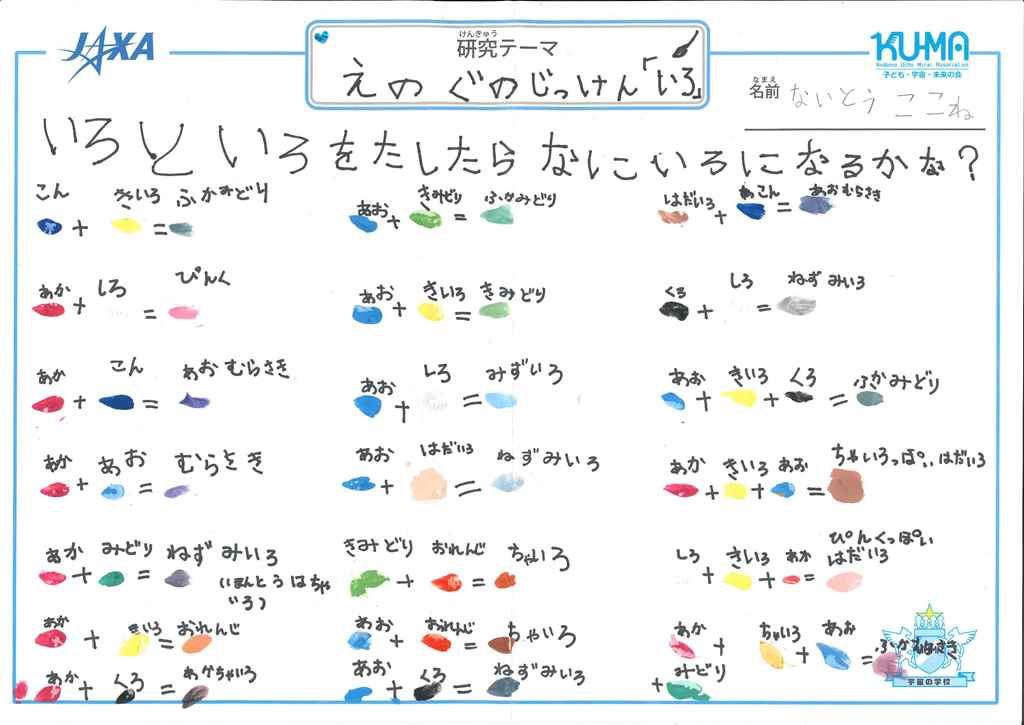 JAXA
けんきゅう
研究テーマ
えの ぐのじっけん「いろ」
KU-MA
Kodomo Uchu Mirai Association
子ども・宇宙・未来の会
なまえ
名前 ないとう ここね
いろといろをたしたらなにいろになるかな？
こん きいろ ふかみどり
+ =
あか しろ ぴんく
+ =
あか こん あおむらさき
+ =
あか あお むらさき
+ =
あか みどり ねずみいろ
+ =
(ほんとうはちゃ
いろ)
あか きいろ おれんじ
+ =
あか くろ あかちゃいろ
+ =
あお きみどり ふかみどり
+ =
あお きいろ きみどり
+ =
あお しろ みずいろ
+ =
あお はだいろ ねずみいろ
+ =
きみどり おれんじ ちゃいろ
+ =
あお おれんじ ちゃいろ
+ =
あお くろ ねずみいろ
+ =
はだいろ こん あおむらさき
+ =
くろ しろ ねずみいろ
+ =
あお きいろ くろ ふかみどり
+ + =
あか きいろ あお ちゃいろっぽいはだいろ
+ + =
しろ きいろ あか ぴんくっぽい
はだいろ
+ + =
あか ちゃいろ あお
+ + =
みどり
+
宇宙の学校